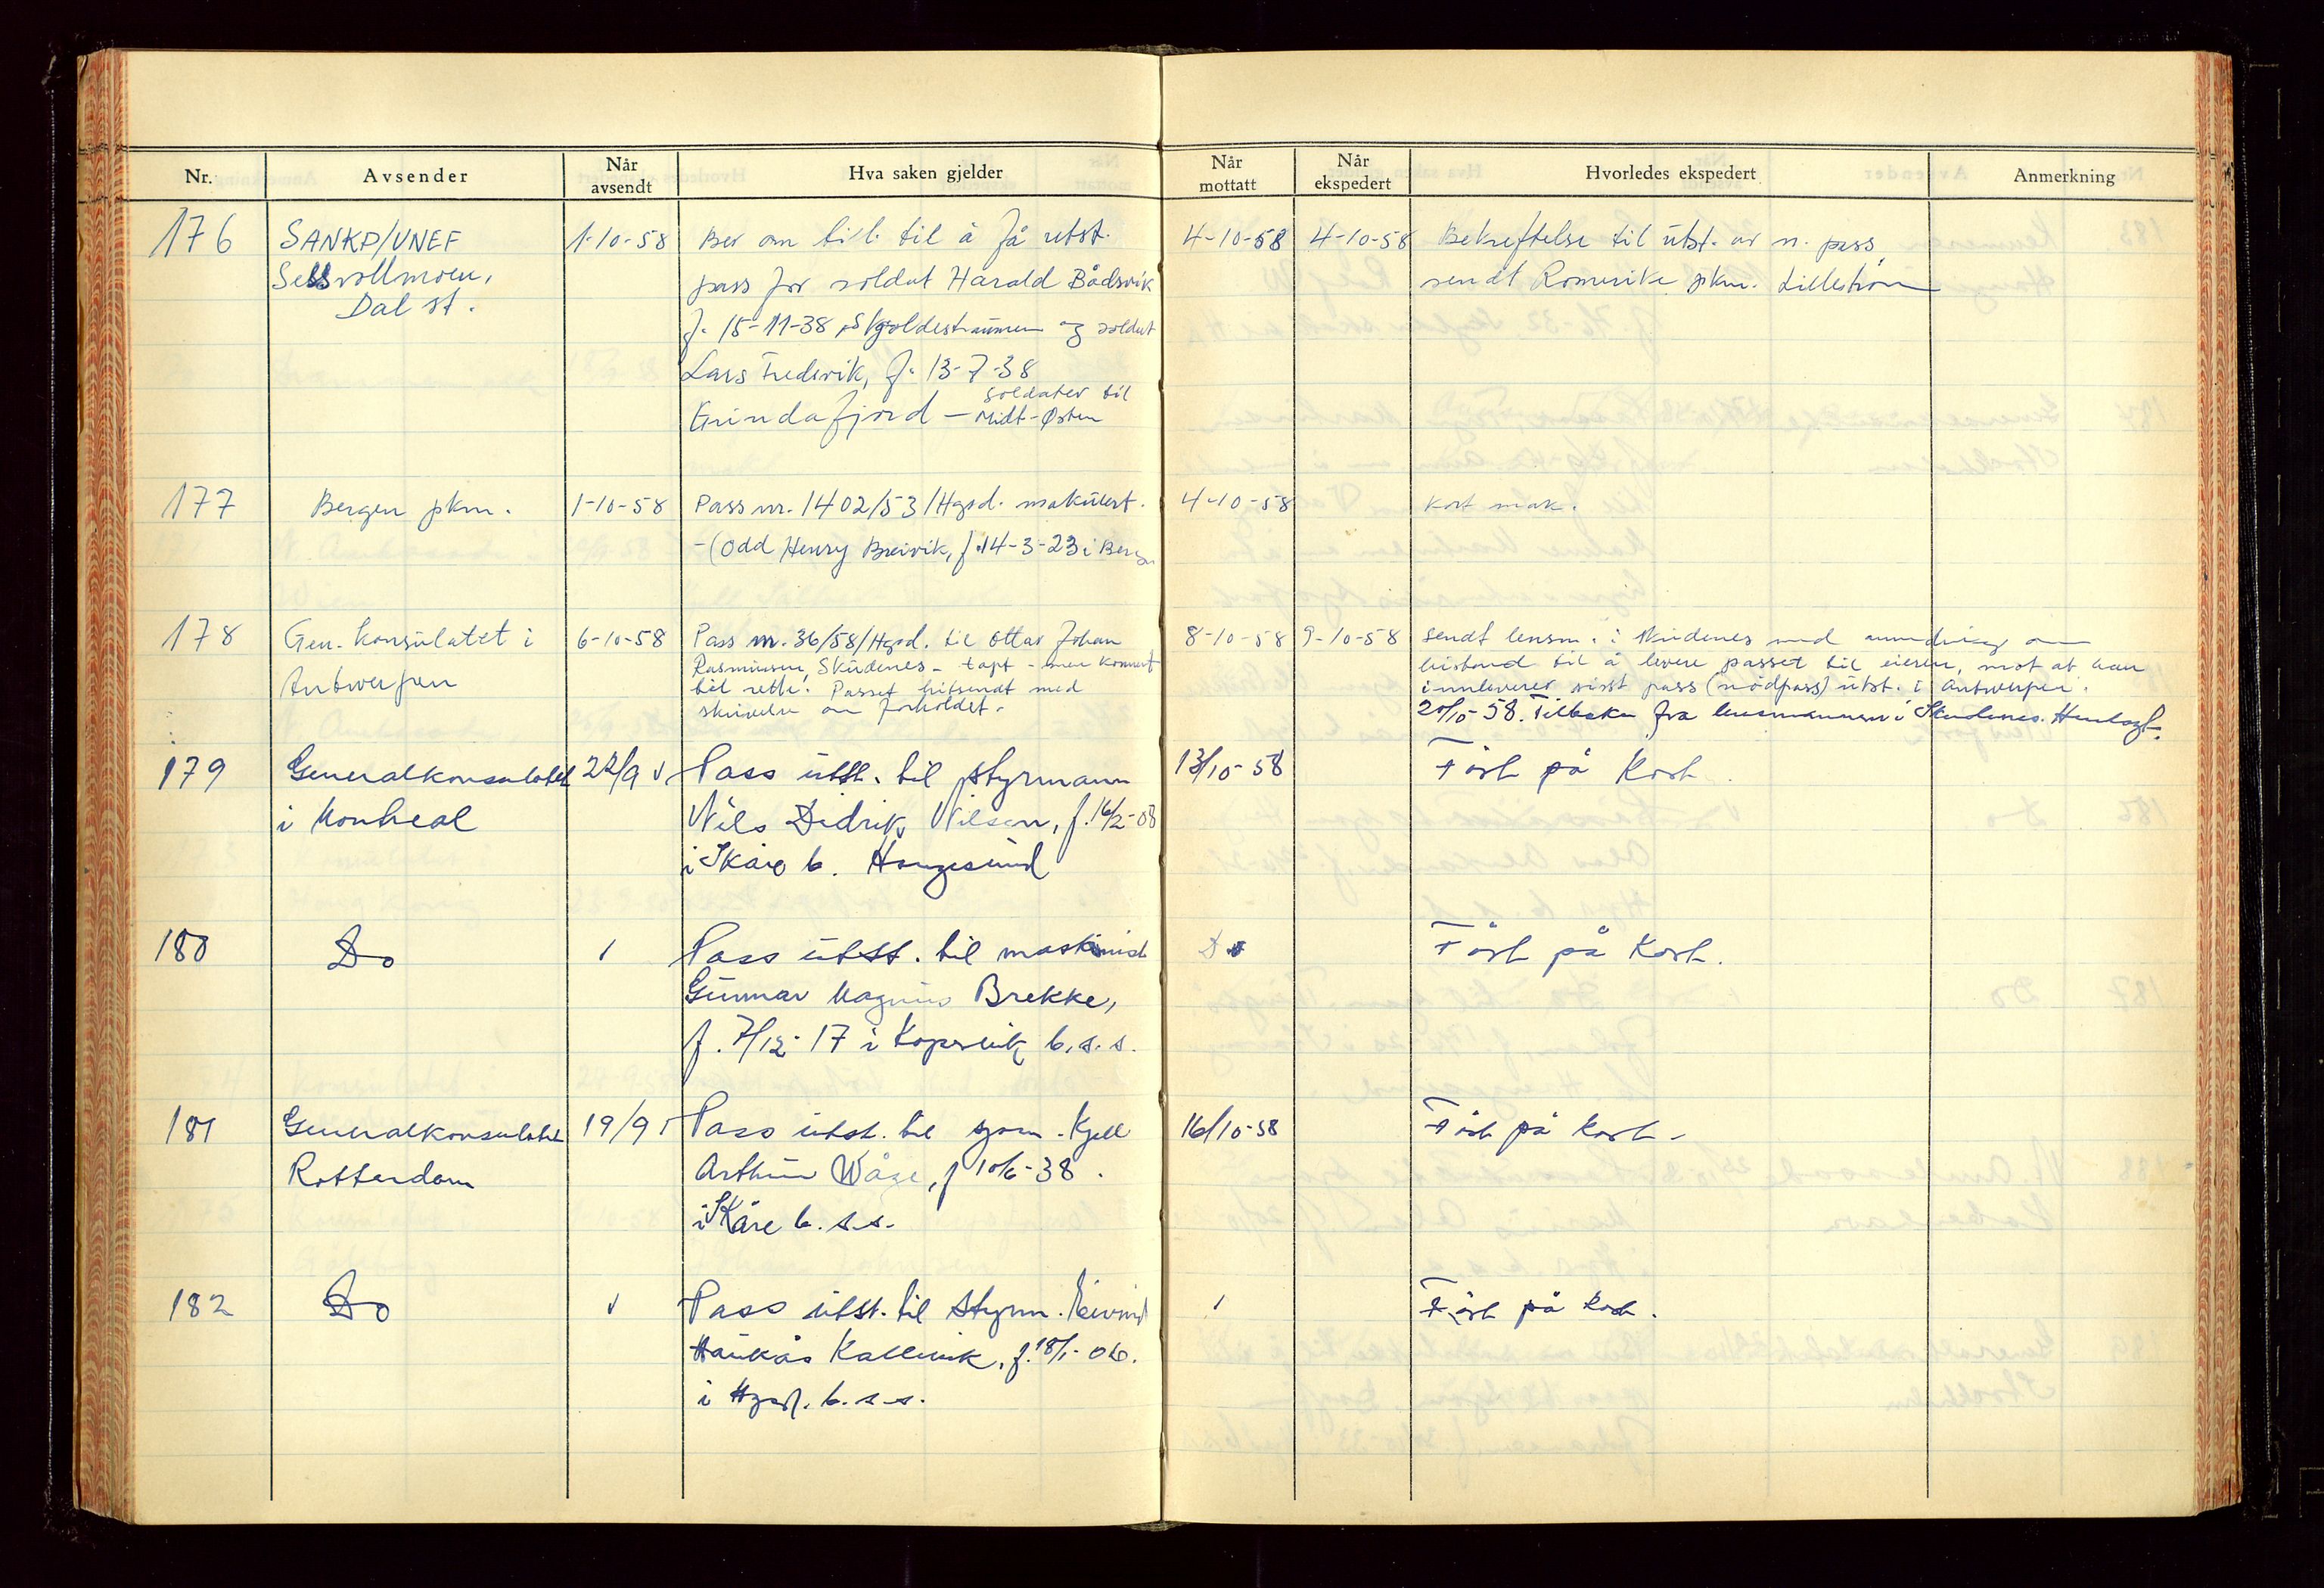 Nr.
Avsender
Når avsendt
Hva saken gjelder
Når mottatt
Når ekspedert
Hvorledes ekspedert
Anmerkning
176 SANKP/UNEF 1-10-58 Ber om till. til å få utst. 4-10-58 4-10-58 Bekreftelse til utst. av n. pass
Sessvollmoen, pass for soldat Harald Bådsvik sendt Romerike pkm. Lillestrøm
Dal st. f. 15-11-38, Skjoldestraumen og soldat
Lars Fredrik, f. 13-7-38
soldater til
Grindafjord – Midt-Østen
177 Bergen pkm. 1-10-58 Pass nr. 1402/53/Hgsd. makulert. 4-10-58 Kort mak.
-(Odd Henry Breivik, f. 14-3-23 i Bergen
178 Gen. konsulatet i 6-10-58 Pass nr. 36/58/Hgsd. til Ottar Johan 8-10-58 9-10-58 sendt lensm. i Skudenes med anmodning om
Antwerpen Rasmussen, Skudenes - tapt - men kommet bistand til å levere passet til eieren, mot at han
til rette. Passet hitsendt med innleverer sist pass (nødpass) utst. i Antwerpen.
skrivelse om forholdet. 20/10-58. Tilbake fra lensmannen i Skudenes. Henlagt.
179 Generalkonsulatet 22/9 Pass utst. til styrmann 13/10-58 Ført på Kort.
i Montreal Nils Didrik Nilsen, f. 16/2-08
i Skåre b. Haugesund
180 Do Pass utst. til maskinist Do Ført på Kort.
Gunnar Magnus Brekke,
f. 7/12-17 i Kopervik b.s.s.
181 Generalkonsulatet 19/9 Pass utst. til sjøm. Kjell 16/10-58 Ført på kort.
Rotterdam Arthur Våge, f 10/6-38.
i Skåre b.s.s.
182 Do Pass utst. til styrm. Eivind Ført på kort.
Haukås Kallevik, f. 18/1-06.
i Hgsd. b.s.s.